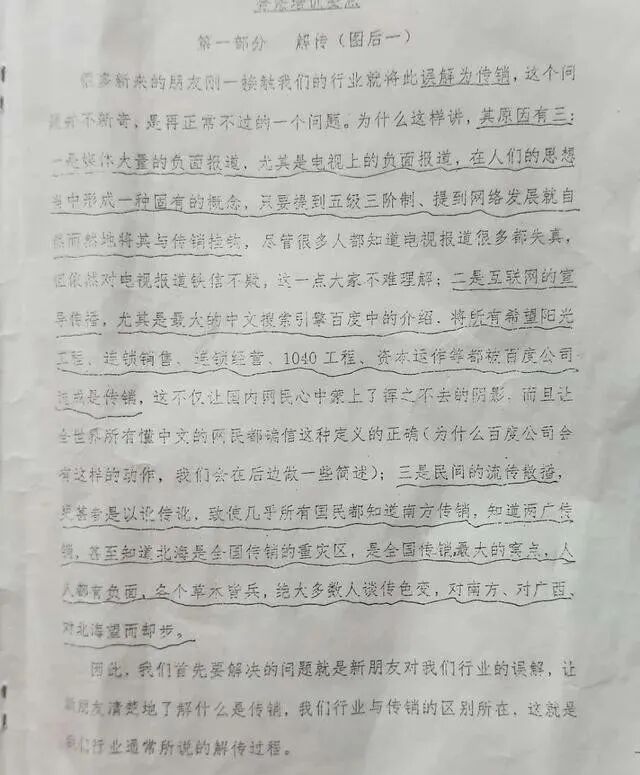 第一部分 解传(图后一)
很多新来的朋友刚一接触我们的行业就将此误解为传销,这个问
并不新奇,是再正常不过的一个问题。为什么这样讲,其原因有三:
一是媒体大量的负面报道,尤其是电视上的负面报道,在人们的思想
当中形成一种固有的概念,只要提到五级三阶制、提到网络发展就自
然而然地将其与传销挂钩,尽管很多人都知道电视报道很多都失真,
但依然对电视报道铁信不疑,这一点大家不难理解;二是互联网的宣
导传播,尤其是最大的中文搜索引擎百度中的介绍.将所有希望阳光
工程、连锁销售、连锁经营、1040工程、资本运作等都被百度公司
成是传销,这不仅让国内网民心中蒙上了挥之不去的阴影,而且让
全世界所有懂中文的网民都确信这种定义的正确(为什么百度公司会
有这样的动作,我们会在后边做一些简述);三是民间的流传散播,
更甚者是以讹传讹,致使几乎所有国民都知道南方传销,知道两广传
销,甚至知道北海是全国传销的重灾区,是全国传销最大的窝点,人
人都有负面,各个草木皆兵,绝大多数人谈传色变,对南方、对广西、
对北海望而却步。
因此,我们首先要解决的问题就是新朋友对我们行业的误解,让
新朋友清楚地了解什么是传销,我们行业与传销的区别所在,这就是
我们行业通常所说的解传过程。